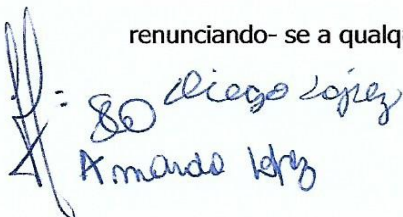 renunciando- se a qualqu
: 80 Diego López
Amanda López